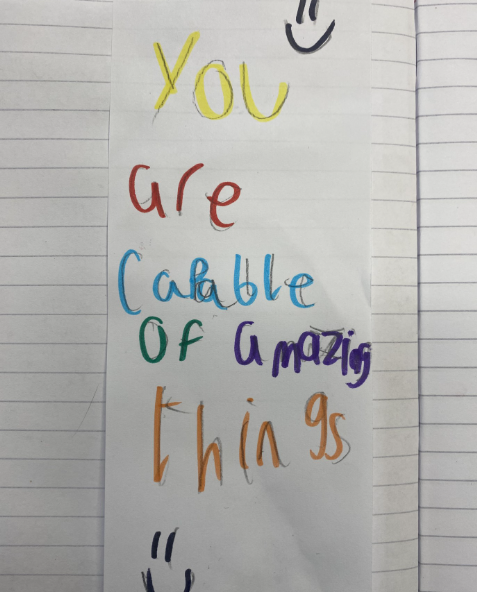 You
are
Capable
OF amazing
things